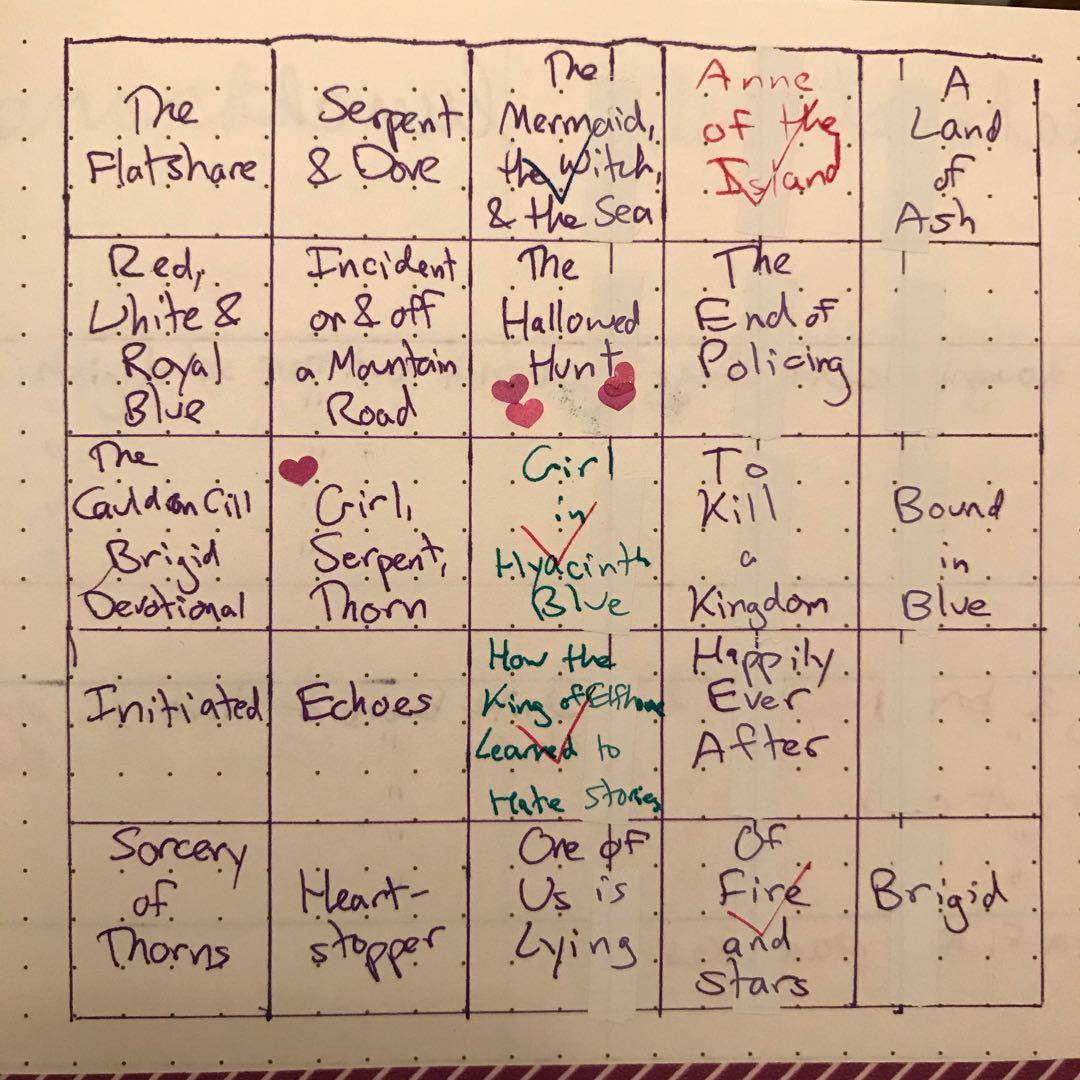 The
Flatshare
Serpent
& Dove
The
Mermaid,
the Witch,
& the Sea
Anne
of the
Island
A
Land
of
Ash
Red,
White &
Royal
Blue
Incident
on & off
a Mountain
Road
The
Hallowed
Hunt
The
End of
Policing
The
Cauldon Cill
Brigid
Devotional
Girl,
Serpent,
Thorn
Girl
in
Hyacinth
Blue
To
Kill
a
Kingdom
Bound
in
Blue
Initiated
Echoes
How the
King of Elfhame
Learned to
Hate Stories
Happily
Ever
After
Sorcery
of
Thorns
Heart-
stopper
One of
Us is
Lying
Of
Fire
and
Stars
Brigid